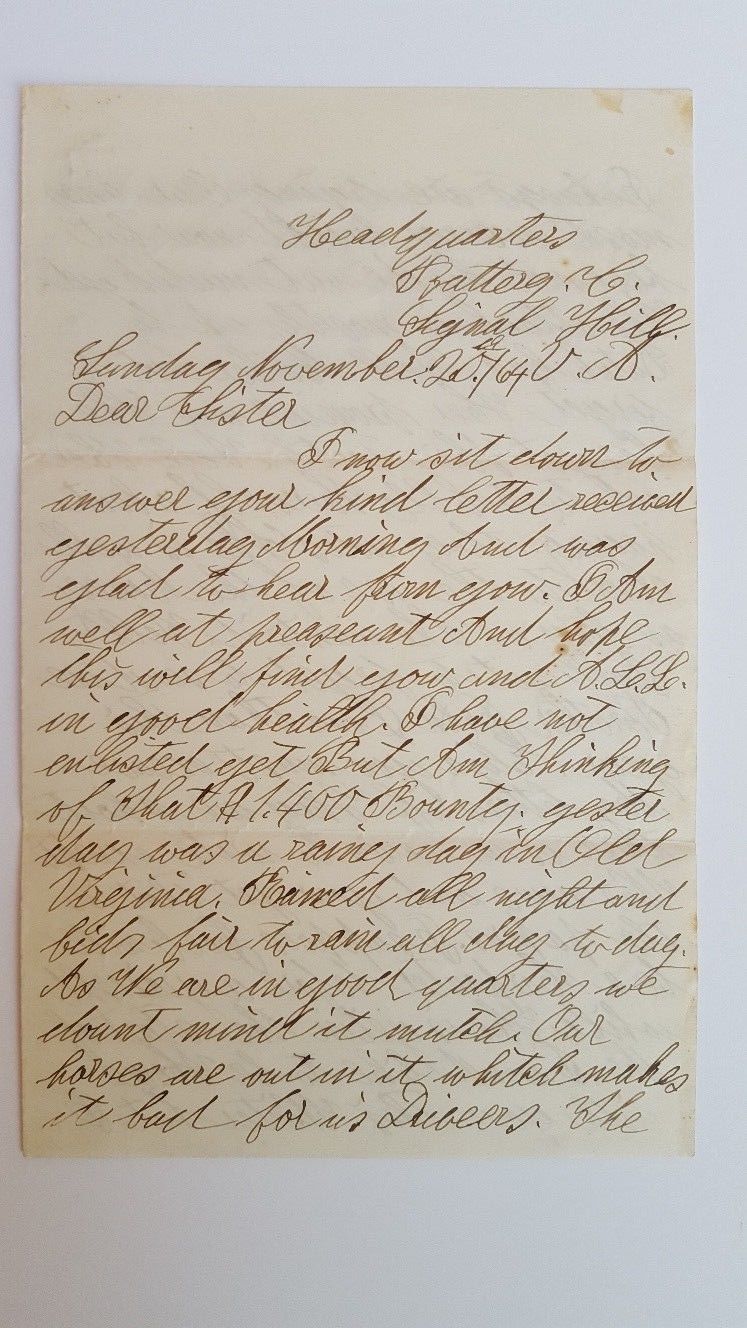 Headquarters
Battery. C.
Signal Hill.
Sunday November. 20th/64 V. A.
Dear Sister
I now sit down to
answer your kind letter received
yesterday Morning And was
glad to hear from yow. I Am
well at preaseant And hope
this will find yow and A. L. L.
in good health. I have not
enlisted yet But Am Thinking
of That $1.400 Bounty. yester
day was a rainy day in Old
Virginia. Rained all night and
bids fair to rain all day to day.
As We are in good quarters we
dount mind it mutch. Our
horses are out in it whitch makes
it bad for us Drivers. The